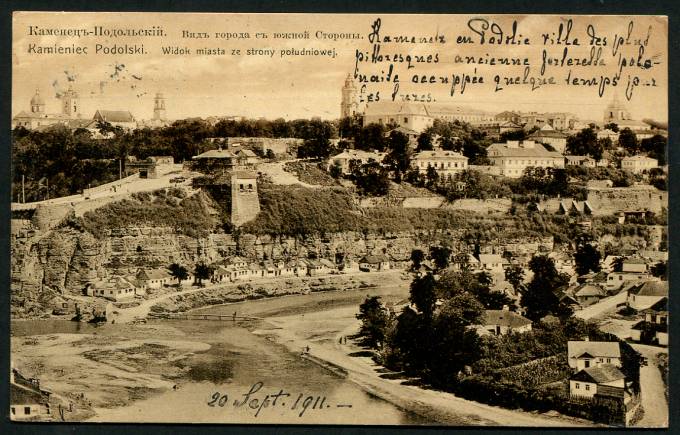 Каменецъ-Подольскій. Видъ города съ южной Стороны.
Kamieniec Podolski. Widok miasta ze strony południowej.
Kamenetz en Podolie ville des plus
pittoresques ancienne forteresse polo-
naise occupée quelque temps par
les turcs.
20 Sept. 1911.—